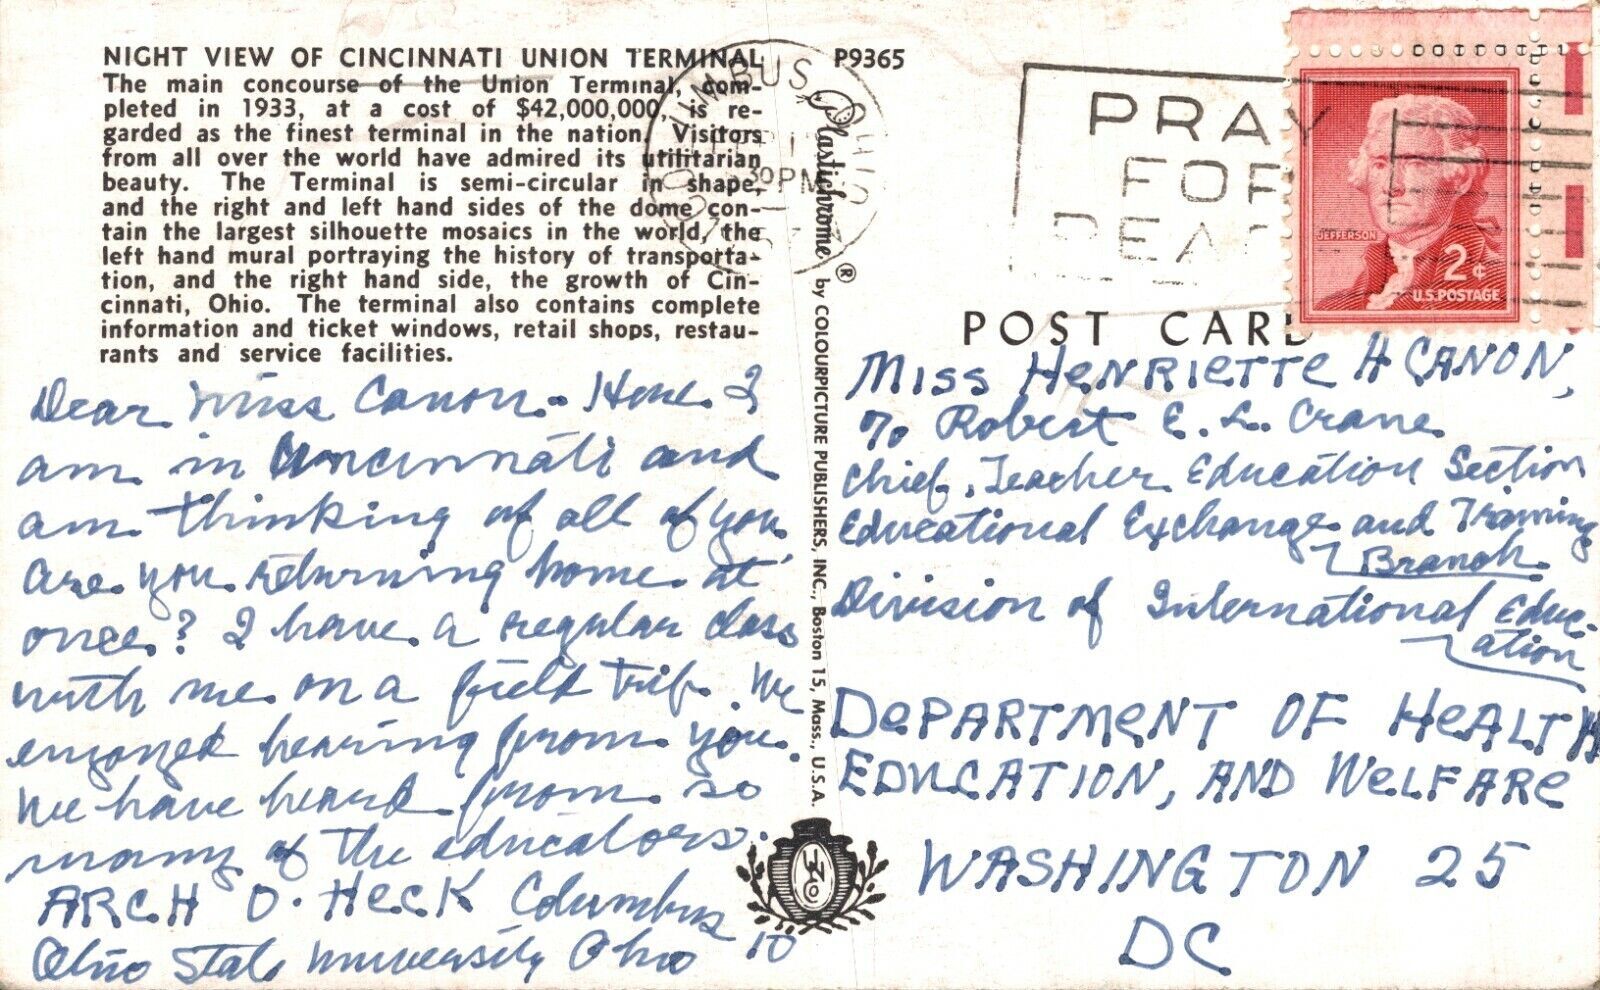 NIGHT VIEW OF CINCINNATI UNION TERMINAL
The main concourse of the Union Terminal, com-
pleted in 1933, at a cost of $42,000,000, is re-
garded as the finest terminal in the nation. Visitors
from all over the world have admired its utilitarian
beauty. The Terminal is semi-circular in shape,
and the right and left hand sides of the dome con-
tain the largest silhouette mosaics in the world, the
left hand mural portraying the history of transporta-
tion, and the right hand side, the growth of Cin-
cinnati, Ohio. The terminal also contains complete
information and ticket windows, retail shops, restau-
rants and service facilities.
Dear Miss Canon - Here I
am in Cincinnati and
am thinking of all of you
Are you returning home at
once? I have a regular class
with me on a field trip. We
enjoyed hearing from you.
We have heard from so
many of the educators.
ARCH O. HECK Columbus 10
Ohio State University Ohio
COLUMBUS, OHIO
30 PM
P9365
Plastichrome ®
by COLOURPICTURE PUBLISHERS, INC., Boston 15, Mass., U.S.A.
PRAY
FOR
PEAC
JEFFERSON
2¢
U.S. POSTAGE
POST CARD
Miss HENRIETTE H CANON,
c/o Robert E. L. Crane
Chief, Teacher Education Section
Educational Exchange and Training
Branch
Division of International Educ-
ation
DEPARTMENT OF HEALTH
EDUCATION, AND WELFARE
WASHINGTON 25
DC